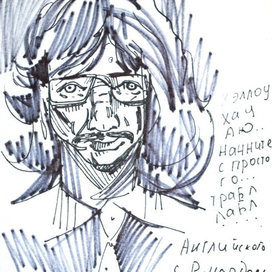 Хэллоу
хач
аю..
начните
с просто
го...
трабл
лабл
Английского
с Ричардом